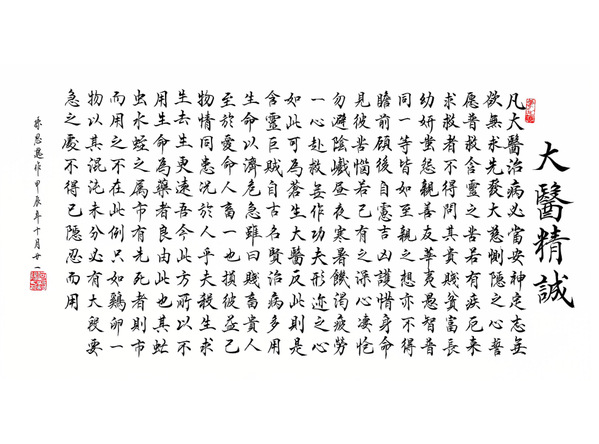 大醫精誠
凡大醫治病必當安神定志無
欲無求先發大慈惻隱之心誓
願普救含靈之苦若有疾厄來
求救者不得問其貴賤貧富長
幼妍蚩怨親善友華夷愚智普
同一等皆如至親之想亦不得
瞻前顧後自慮吉凶護惜身命
見彼苦惱若己有之深心凄愴
勿避險巇晝夜寒暑饑渴疲勞
一心赴救無作功夫形迹之心
如此可為蒼生大醫反此則是
含靈巨賊自古名賢治病多用
生命以濟危急雖曰賤畜貴人
至於愛命人畜一也損彼益己
物情同患況於人乎夫殺生求
生去生更遠吾今此方所以不
用生命為藥者良由此也其虻
虫水蛭之屬市有先死者則市
而用之不在此例只如鷄卵一
物以其混沌未分必有大段要
急之處不得已隱忍而用
作甲辰年十月廿一